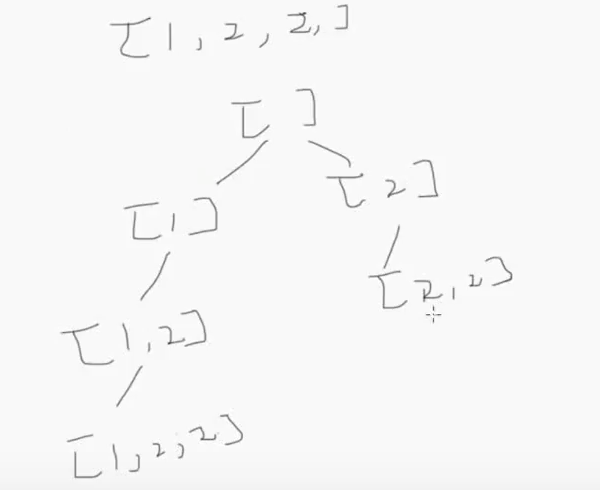 [1, 2, 2,]
[ ]
[1]
[2]
[1,2]
[2,2]
[1,2,2]